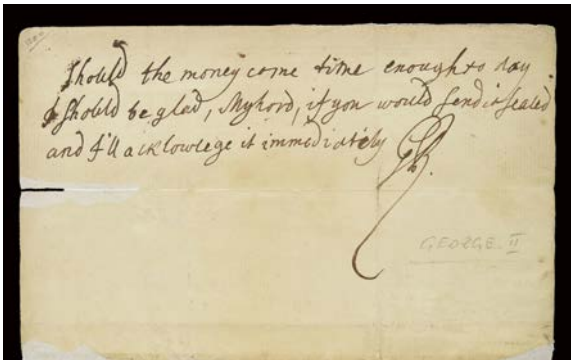 Should the money come time enough to day
I should be glad, My Lord, if you would send it sealed
and I'll acklowlege it immediately GR.
GEORGE. II